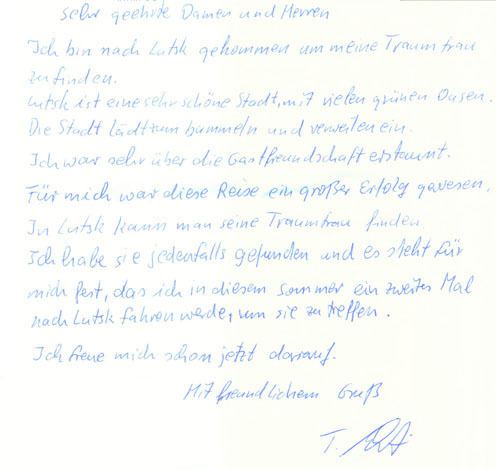 sehr geehrte Damen und Herren
Ich bin nach Lutsk gekommen um meine Traumfrau
zu finden.
Lutsk ist eine sehr schöne Stadt, mit vielen grünen Oasen.
Die Stadt lädt zum bummeln und verweilen ein.
Ich war sehr über die Gastfreundschaft erstaunt.
Für mich war diese Reise ein großer Erfolg gewesen.
In Lutsk kann man seine Traumfrau finden
Ich habe sie jedenfalls gefunden und es steht für
mich fest, das ich in diesem sommer ein zweites Mal
nach Lutsk fahren werde, um sie zu treffen.
Ich freue mich schon jetzt darauf.
Mit freundlichem Gruß
T.